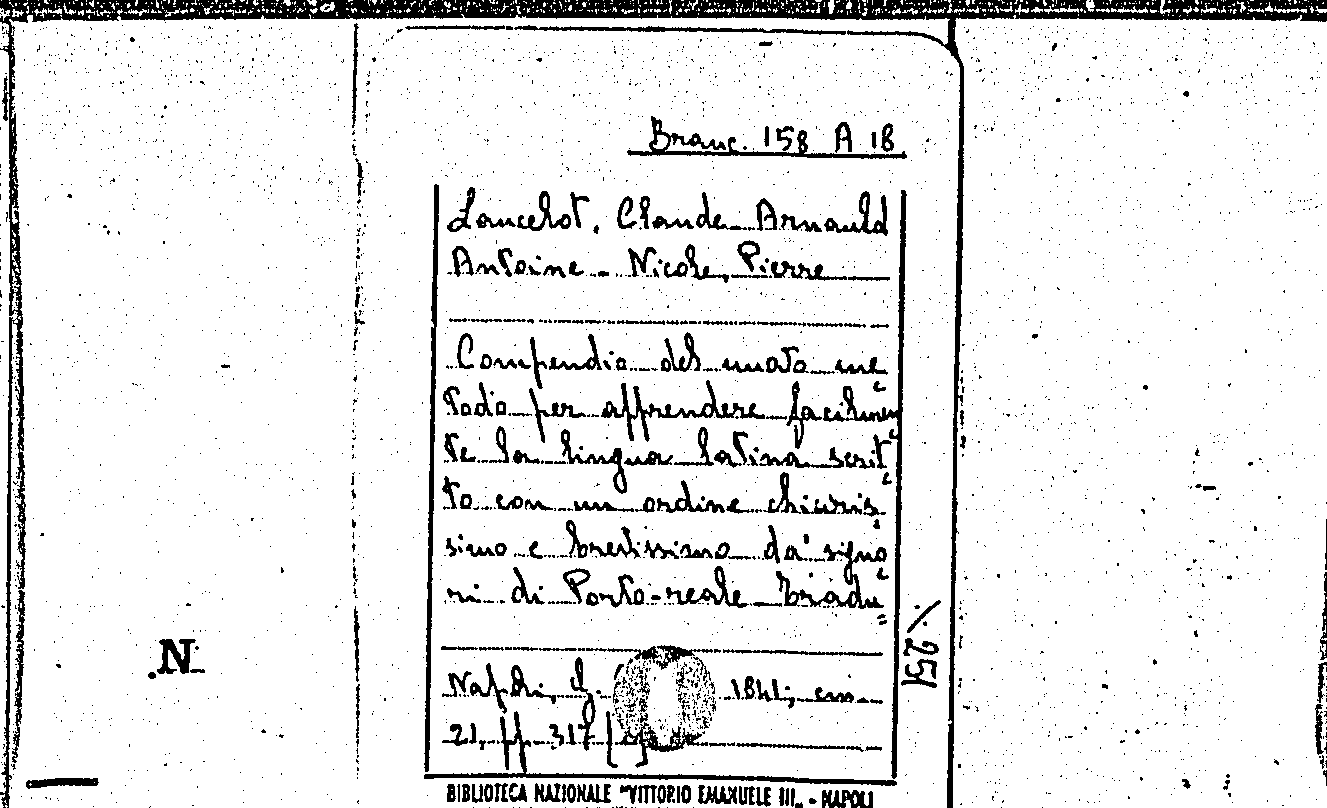 Branc. 158 A 18
Lancelot, Claude - Arnauld
Antoine - Nicole, Pierre
Compendio del nuovo me
todo per apprendere facilmen
te la lingua latina scrit
to con un ordine chiaris
simo e brevissimo da' signo
ri di Porto-reale Tradu
Napoli, G. 1841; cm.
21, pp. 317
251
N
BIBLIOTECA NAZIONALE "VITTORIO EMANUELE III" - NAPOLI